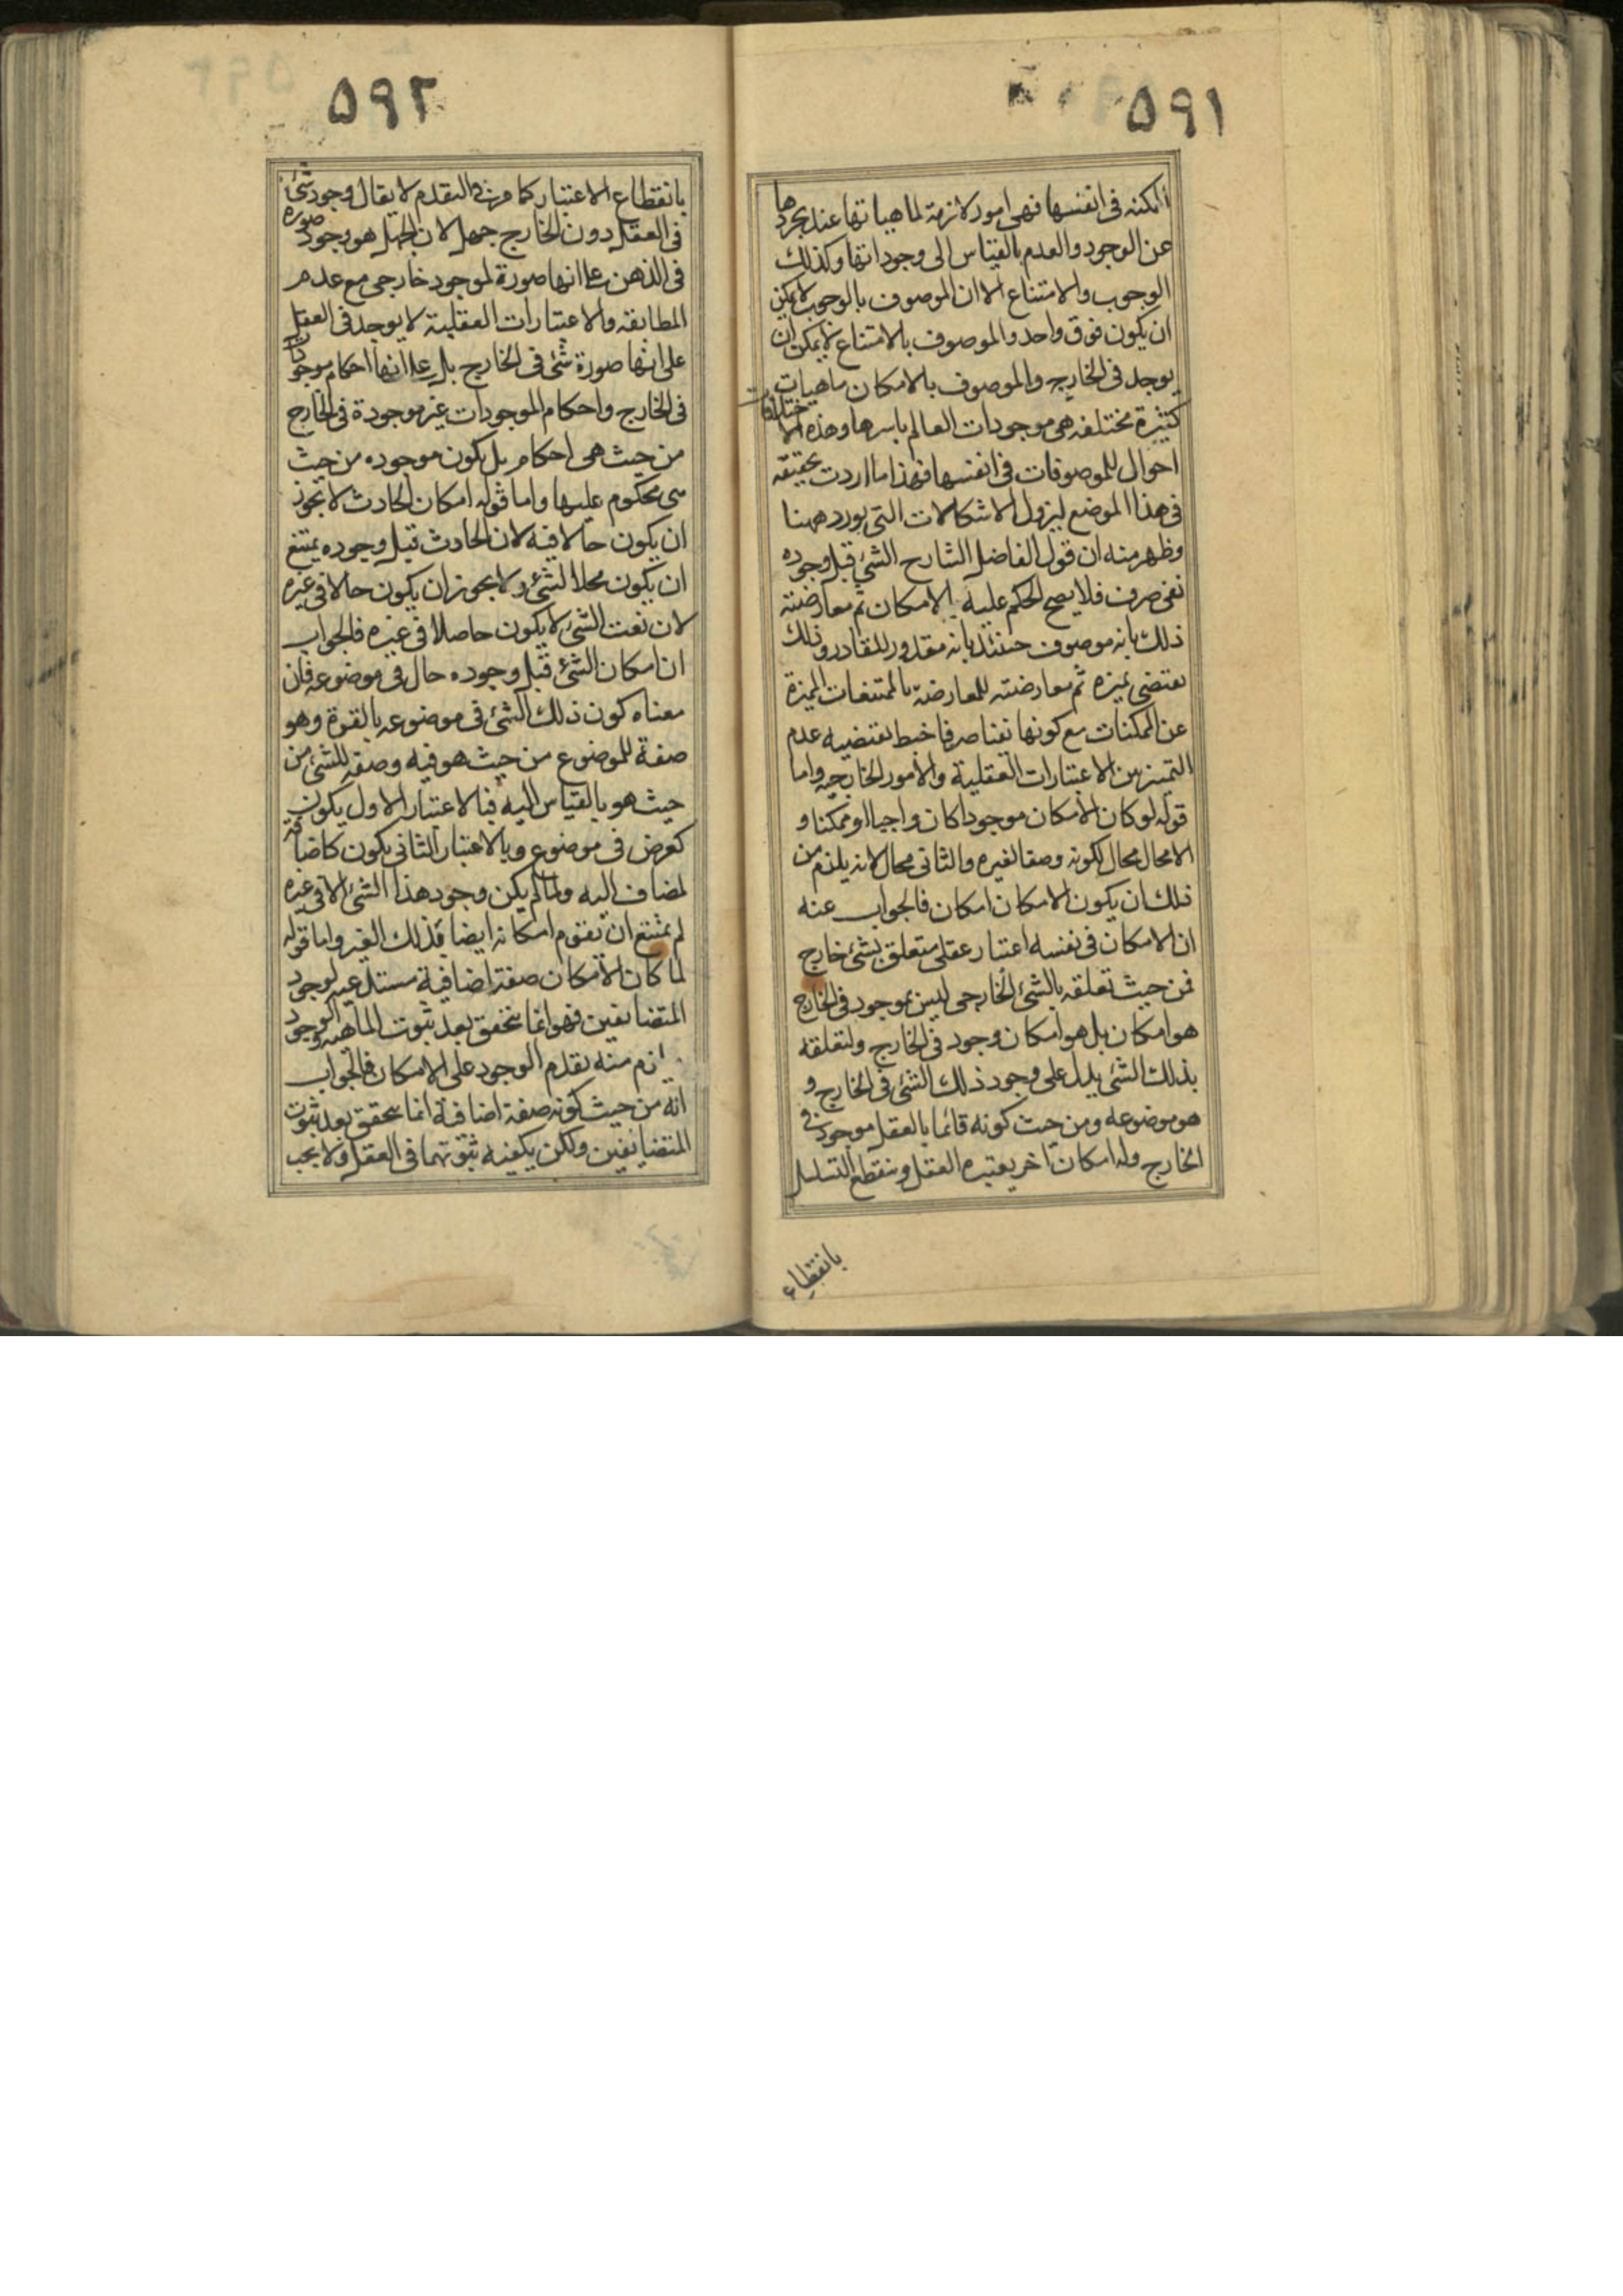 ٥٩١
امكنه فى انفسها فهى امور لازمة لماهياتها عند تجردها
عن الوجود والعدم بالقياس الى وجوداتها وكذلك
الوجوب والامتناع الا ان الموصوف بالوجوب لا يمكن
ان يكون فوق واحد والموصوف بالامتناع لا يمكن ان
يوجد فى الخارج والموصوف بالامكان ماهيات
كثيرة مختلفه هى موجودات العالم باسرها وهذه الاختلافات
احوال للموصوفات فى انفسها فهذا ما اردت تحقيقه
فى هذا الموضع ليزول الاشكالات التى يورد ههنا
وظهر منه ان قول الفاضل الشارح الشئ قبل وجوده
نفى صرف فلا يصح الحكم عليه بالامكان ثم معارضته
ذلك بانه موصوف حينئذ بانه مقدور للقادر وذلك
يقتضى تميزه ثم معارضته للمعارضة بالممتنعات المميزة
عن الممكنات مع كونها نفيا صرفا خبط يقتضيه عدم
التميز بين الاعتبارات العقلية والأمور الخارجيه واما
قوله لو كان الامكان موجودا كان واجبا او ممكنا و
الا محال محال لكونه وصفا لغيره والثانى محال لانه يلزم من
ذلك ان يكون للامكان امكان فالجواب عنه
ان الامكان فى نفسه اعتبار عقلى متعلق بشئ خارج
فمن حيث تعلقه بالشئ الخارجى ليس بموجود فى الخارج
هو امكان بل هو امكان وجود فى الخارج ولتعلقه
بذلك الشئ يدل على وجود ذلك الشئ فى الخارج و
هو موضوعه ومن حيث كونه قائما بالعقل موجود فى
الخارج وله امكان آخر يعتبره العقل وينقطع التسلسل
بانقطاع
٥٩٢
بانقطاع الاعتبار كما مر فى التقدم لا يقال وجود شئ
فى العقل دون الخارج جهل لان الجهل هو وجود صوره
فى الذهن على انها صورة لموجود خارجى مع عدم
المطابقه والاعتبارات العقلية لا يوجد فى العقل
على انها صورة شئ فى الخارج بل على انها احكام موجودات
فى الخارج واحكام الموجودات غير موجودة فى الخارج
من حيث هى احكام بل يكون موجوده من حيث
هى محكوم عليها واما قوله امكان الحادث لا يجوز
ان يكون حالا فيه لان الحادث قبل وجوده يمتنع
ان يكون محلا لشئ ولا يجوز ان يكون حالا فى غيره
لان نعت الشئ لا يكون حاصلا فى غيره فالجواب
ان امكان الشئ قبل وجوده حال فى موضوعه فان
معناه كون ذلك الشئ فى موضوعه بالقوة وهو
صفة للموضوع من حيث هو فيه وصفه للشئ من
حيث هو بالقياس اليه فبالاعتبار الاول يكون
كعرض فى موضوع وبالاعتبار الثانى يكون كاضافة
لمضاف اليه ولما لم يكن وجود هذا الشئ الا فى غيره
لم يمتنع ان يقوم امكانه ايضا بذلك الغير واما قوله
لما كان الامكان صفة اضافية مستدعيه لوجود
المتضايفين فهو انما يتحقق بعد ثبوت الماهيه والوجود
لزم منه تقدم الوجود على الامكان فالجواب
انه من حيث كونه صفة اضافية انما يتحقق بعد ثبوت
المتضايفين ولكن يكفيه ثبوتهما فى العقل ولا يجب